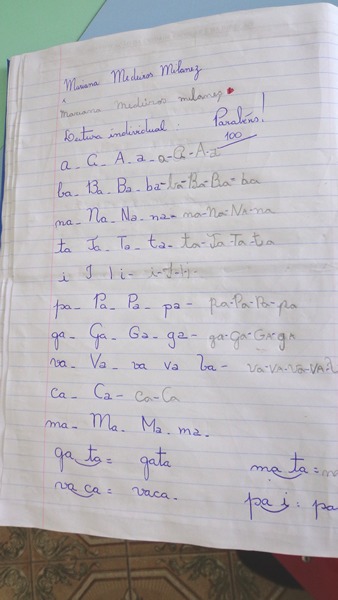 Mariana Medeiros Milanez
mariana medeiros milanez
Leitura individual: Parabéns!
100
a - a - A - a - a - a - A - a
ba - Ba - Ba - ba - ba - Ba - Ba - ba
na - Na - Na - na - na - na - NA - na
ta Ta - Ta - ta - ta - Ta - Ta - ta
i I I i - i - I - I - i -
pa - Pa - Pa - pa - pa - Pa - Pa - pa
ga - Ga - Ga - ga - ga - Ga - GA - gA
va - Va - va va - va - VA - va - VA
ca - Ca - ca - Ca
ma - Ma - Ma - ma -
ga ta = gata ma ta =
va ca = vaca. pa i : pa